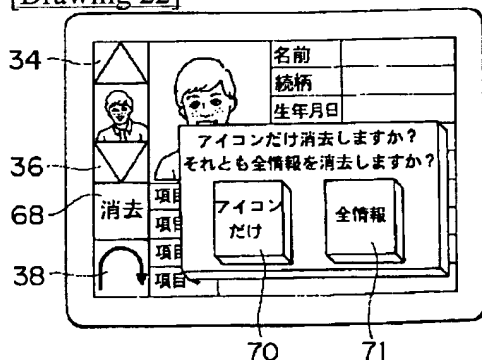 [Drawing 22]
34
36
68
38
名前
続柄
生年月日
アイコンだけ消去しますか?
それとも全情報を消去しますか?
消去
項目
項目
項目
項目
アイコン
だけ
全情報
70
71